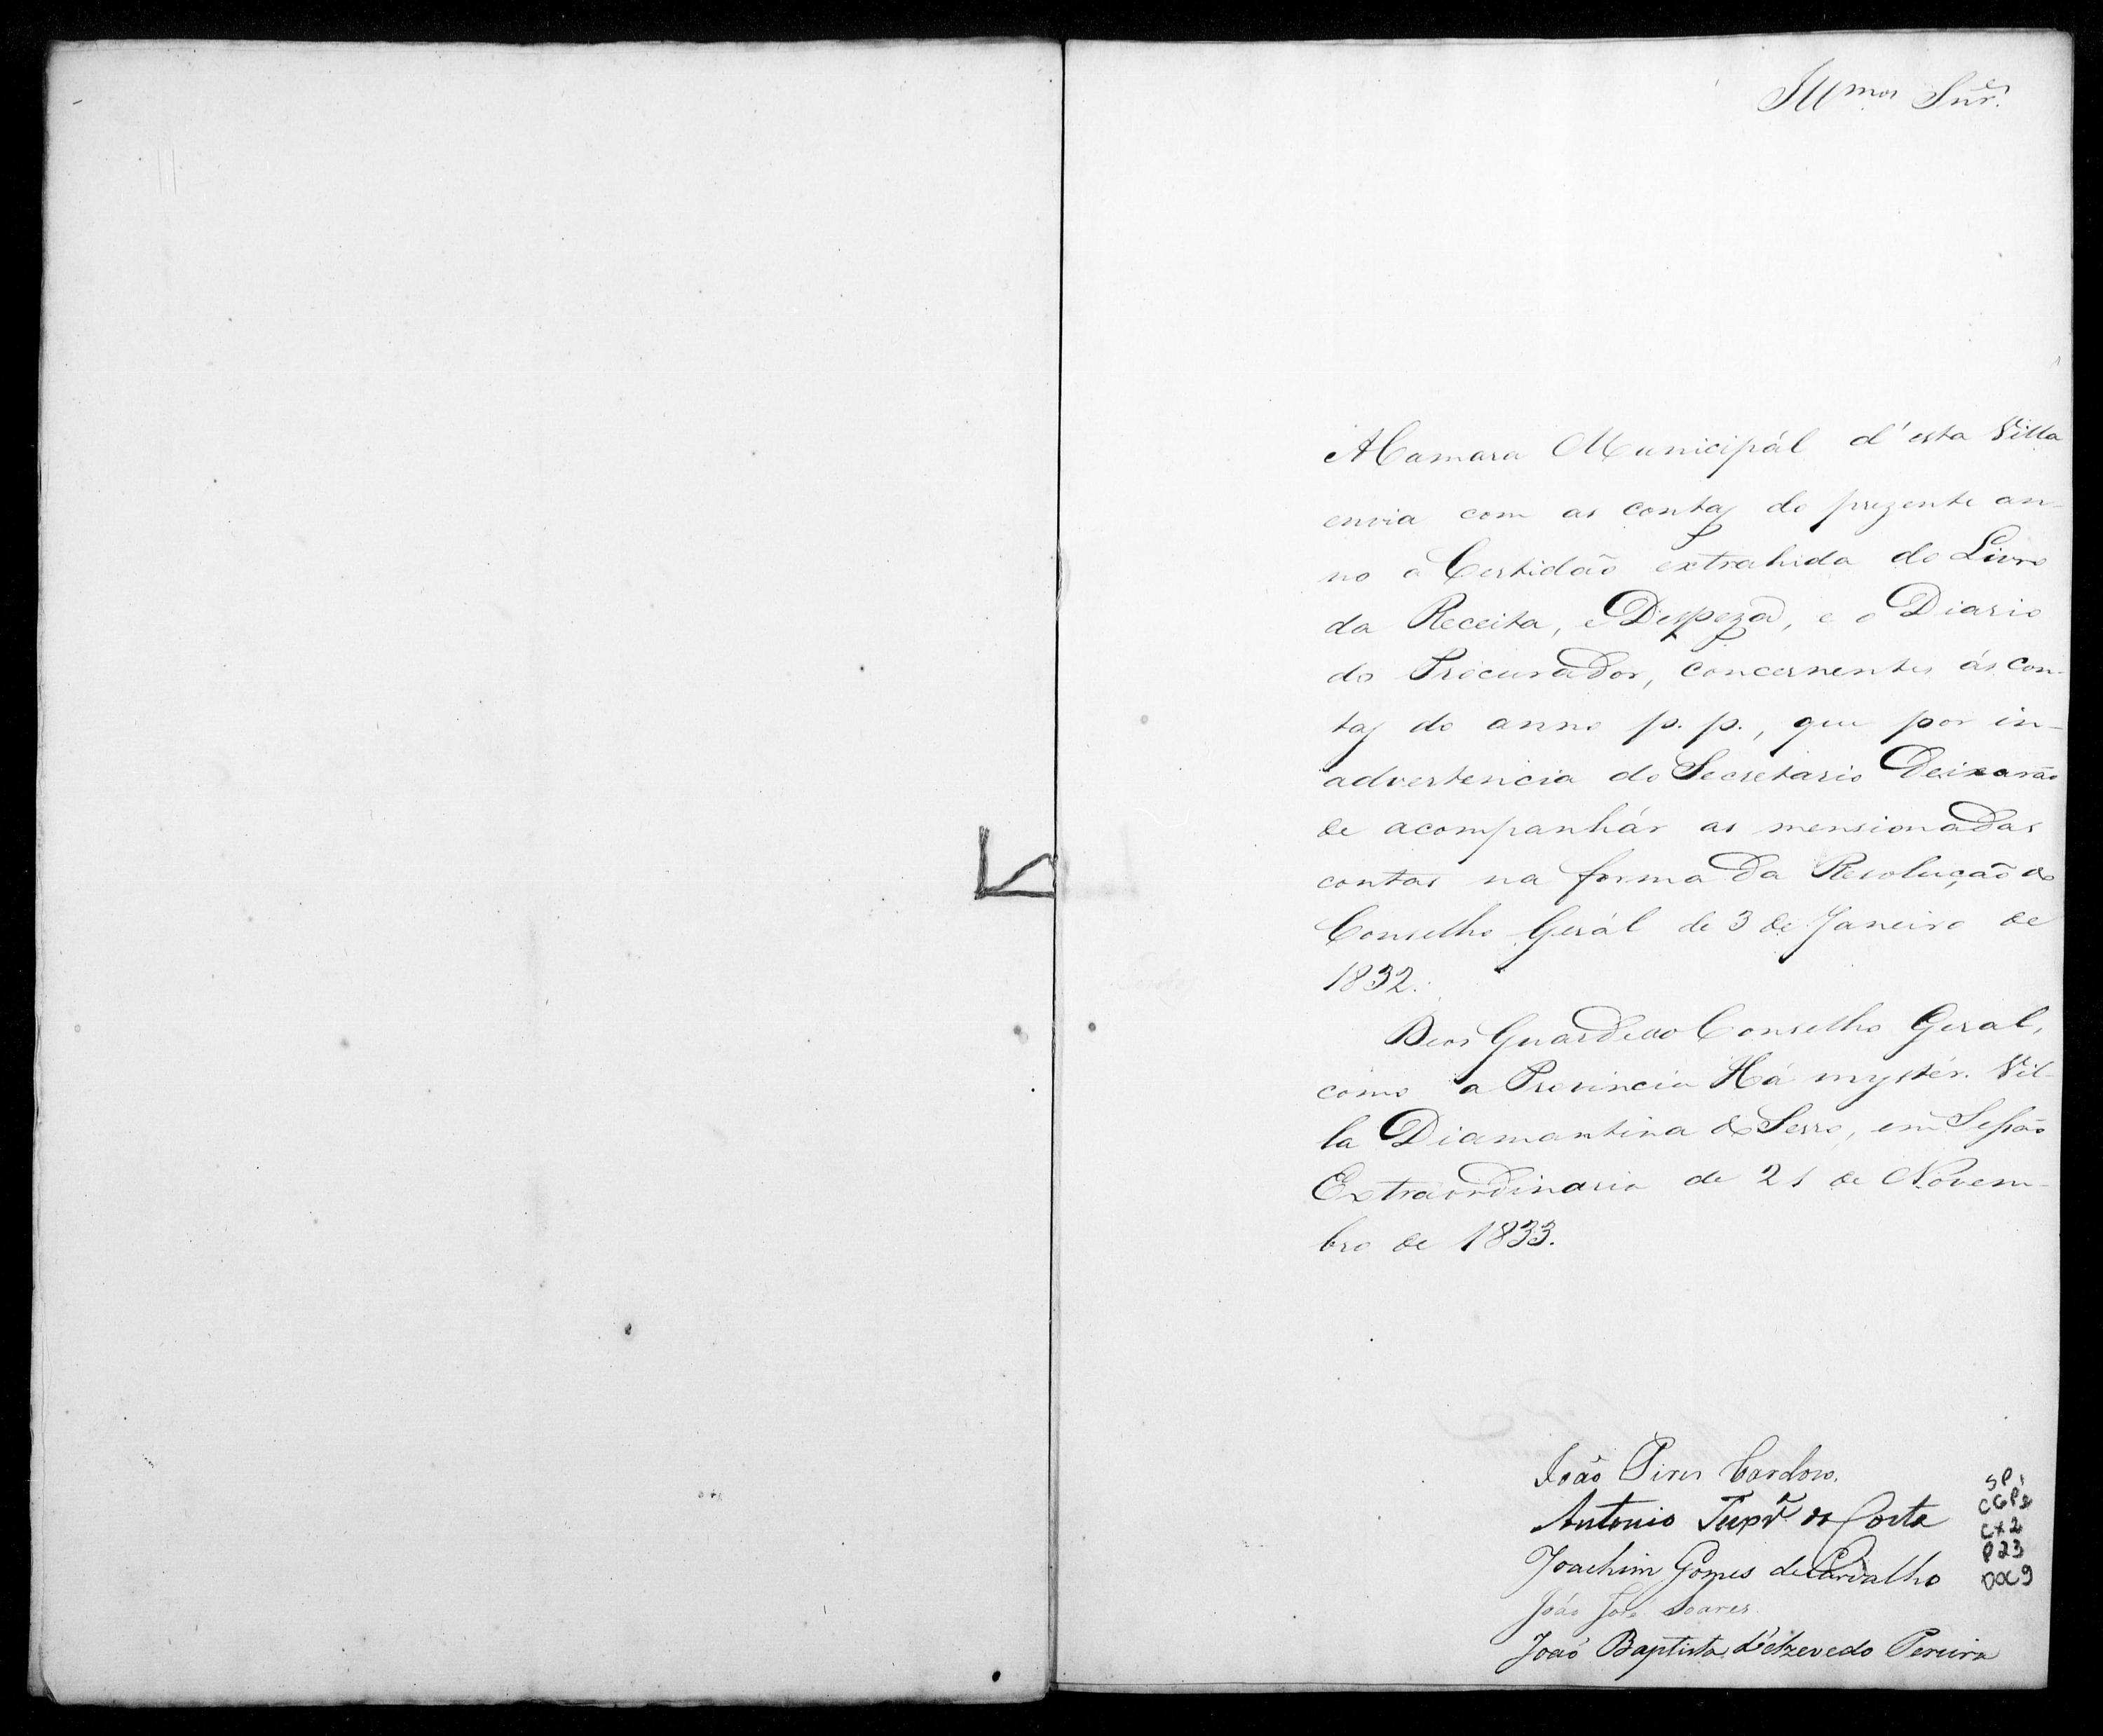 Illmos Snres.
A Camara Municipál d'esta Villa
envia com as contas do prezente an-
no a Certidão extrahida do Livro
da Receita, e Despeza, e o Diario
do Procurador, concernentes ás con-
tas do anno p. p., que por in-
advertencia do Secretario Deixarão
de acompanhár as mensionadas
contas na forma da Resolução do
Conselho Gerál de 3 de Janeiro de
1832.
Deos Guarde ao Conselho Geral,
como a Provincia Há mystér. Vil-
la Diamantina do Serro, em Sessão
Extraordinaria de 21 de Novem-
bro de 1833.
João Pires Cardoso.
Antonio da Costa
Joachim Gomes de Carvalho
João José Soares
João Baptista d'Azevedo Pereira
SP
CGP2
CX2
P23
DOC9